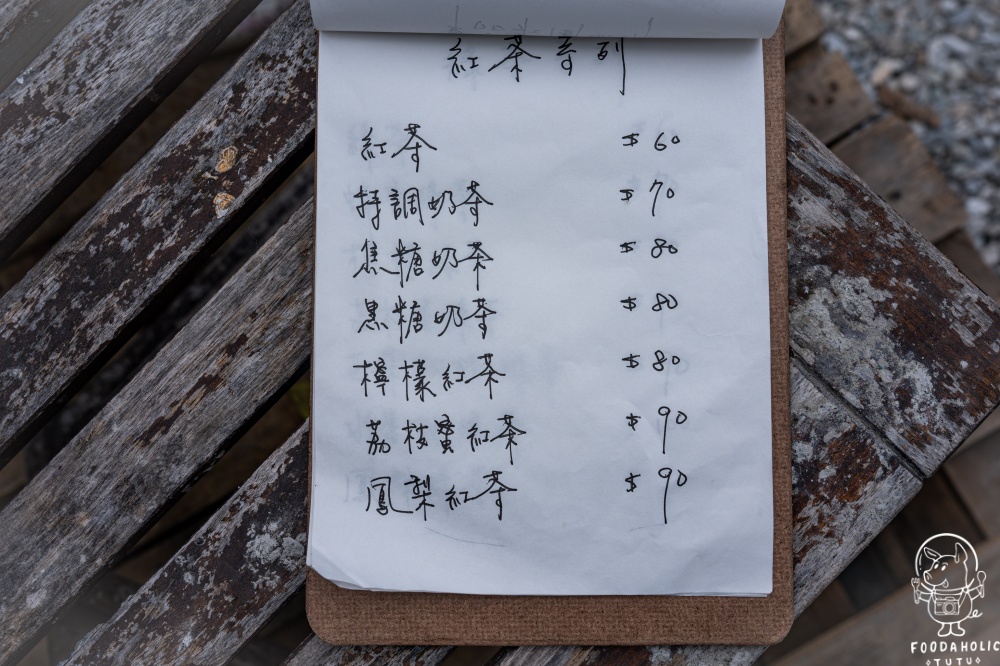 紅茶系列
紅茶 $60
特調奶茶 $70
焦糖奶茶 $80
黑糖奶茶 $80
檸檬紅茶 $80
荔枝蜜紅茶 $90
鳳梨紅茶 $90
FOODAHOLIC
TUTU